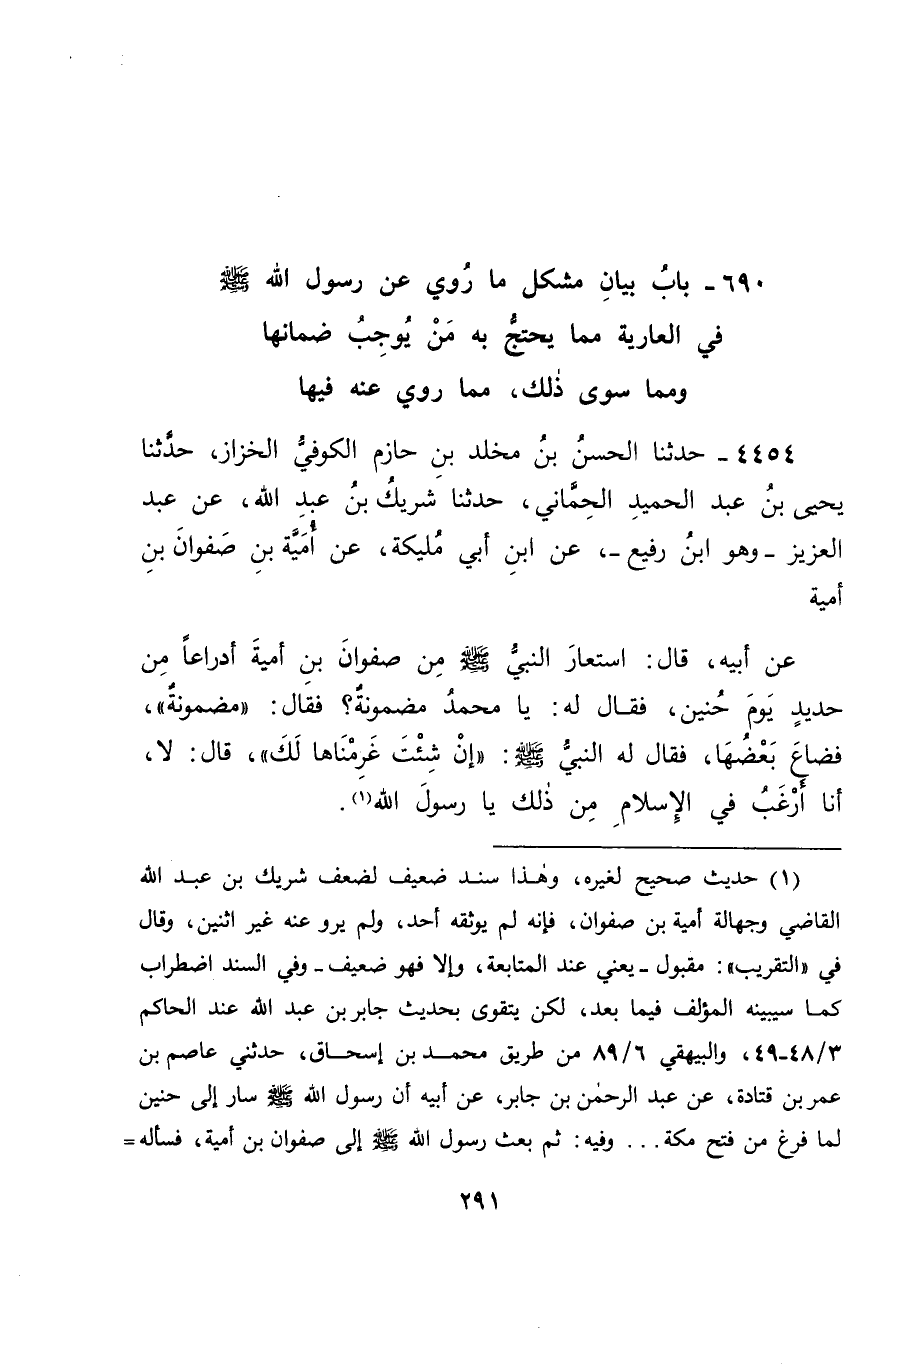 ٦٩٠ ـ بابُ بيانِ مشكل ما رُوي عن رسول الله ﷺ
في العارية مما يحتجُّ به مَنْ يُوجِبُ ضمانها
ومما سوى ذٰلك، مما روي عنه فيها
٤٤٥٤ ـ حدثنا الحسنُ بنُ مخلد بنِ حازم الكوفيُّ الخزاز، حدَّثنا
يحيى بنُ عبد الحميدِ الحِمَّاني، حدثنا شريكُ بنُ عبدِ الله، عن عبد
العزيز ـ وهو ابنُ رفيع ـ، عن ابنِ أبي مُليكة، عن أُمَيَّة بنِ صَفوانَ بنِ
أمية
عن أبيه، قال: استعارَ النبيُّ ﷺ مِن صفوانَ بنِ أميةَ أدراعاً مِن
حديدٍ يَومَ حُنين، فقال له: يا محمدُ مضمونةٌ؟ فقال: «مضمونةٌ»،
فضاعَ بَعْضُهَا، فقال له النبيُّ ﷺ: «إنْ شِئْتَ غَرِمْنَاها لَكَ»، قال: لا،
أنا أَرْغَبُ في الإِسلامِ مِن ذٰلك يا رسولَ الله(١).
(١) حديث صحيح لغيره، وهٰذا سند ضعيف لضعف شريك بن عبد الله
القاضي وجهالة أمية بن صفوان، فإنه لم يوثقه أحد، ولم يرو عنه غير اثنين، وقال
في «التقريب»: مقبول ـ يعني عند المتابعة، وإلا فهو ضعيف ـ وفي السند اضطراب
كما سيبينه المؤلف فيما بعد، لكن يتقوى بحديث جابر بن عبد الله عند الحاكم
٤٨/٣ـ٤٩، والبيهقي ٨٩/٦ من طريق محمد بن إسحاق، حدثني عاصم بن
عمر بن قتادة، عن عبد الرحمٰن بن جابر، عن أبيه أن رسول الله ﷺ سار إلى حنين
لما فرغ من فتح مكة... وفيه: ثم بعث رسول الله ﷺ إلى صفوان بن أمية، فسأله =
٢٩١